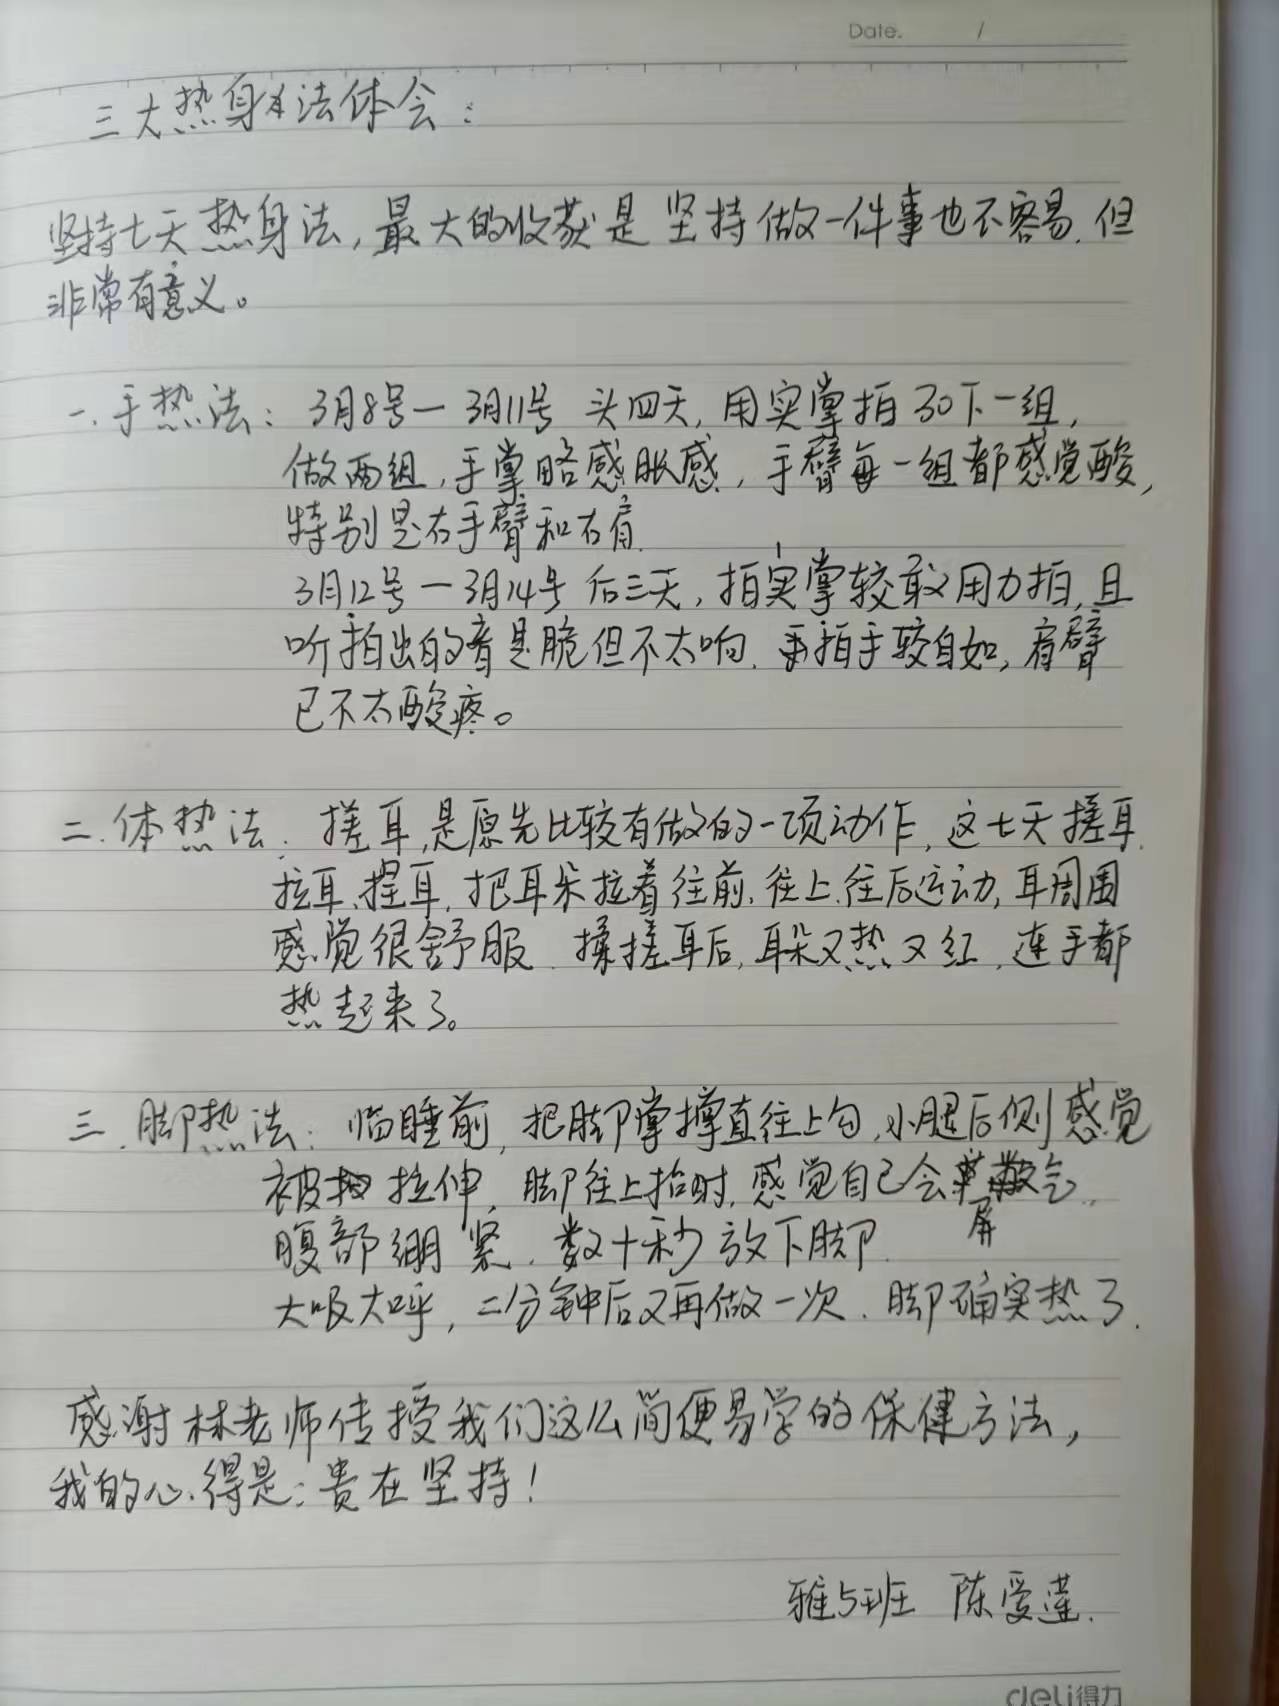 Date. /
三大热身法体会：
坚持七天热身法，最大的收获是坚持做一件事也不容易，但
非常有意义。
一.手热法：3月8号一3月11号 头四天，用实掌拍30下一组，
做两组，手掌略感胀感，手臂每一组都感觉酸，
特别是右手臂和右肩.
3月12号一3月14号 后三天，拍实掌较敢用力拍，且
听拍出的音是脆但不太响.拍手较自如，肩臂
已不太酸疼。
二.体热法：搓耳，是原先比较有做的一项动作，这七天搓耳.
拉耳、捏耳，把耳朵拉着往前.往上.往后运动，耳周围
感觉很舒服.揉搓耳后，耳朵又热又红，连手都
热起来了。
三.脚热法：临睡前，把脚掌撑直往上勾，小腿后侧感觉
被拉伸，脚往上抬时，感觉自己会屏气.
腹部绷紧.数十秒放下脚.
大吸大呼，二分钟后又再做一次.脚确实热了.
感谢林老师传授我们这么简便易学的保健方法，
我的心得是：贵在坚持！
雅5班 陈爱莲.
deli得力